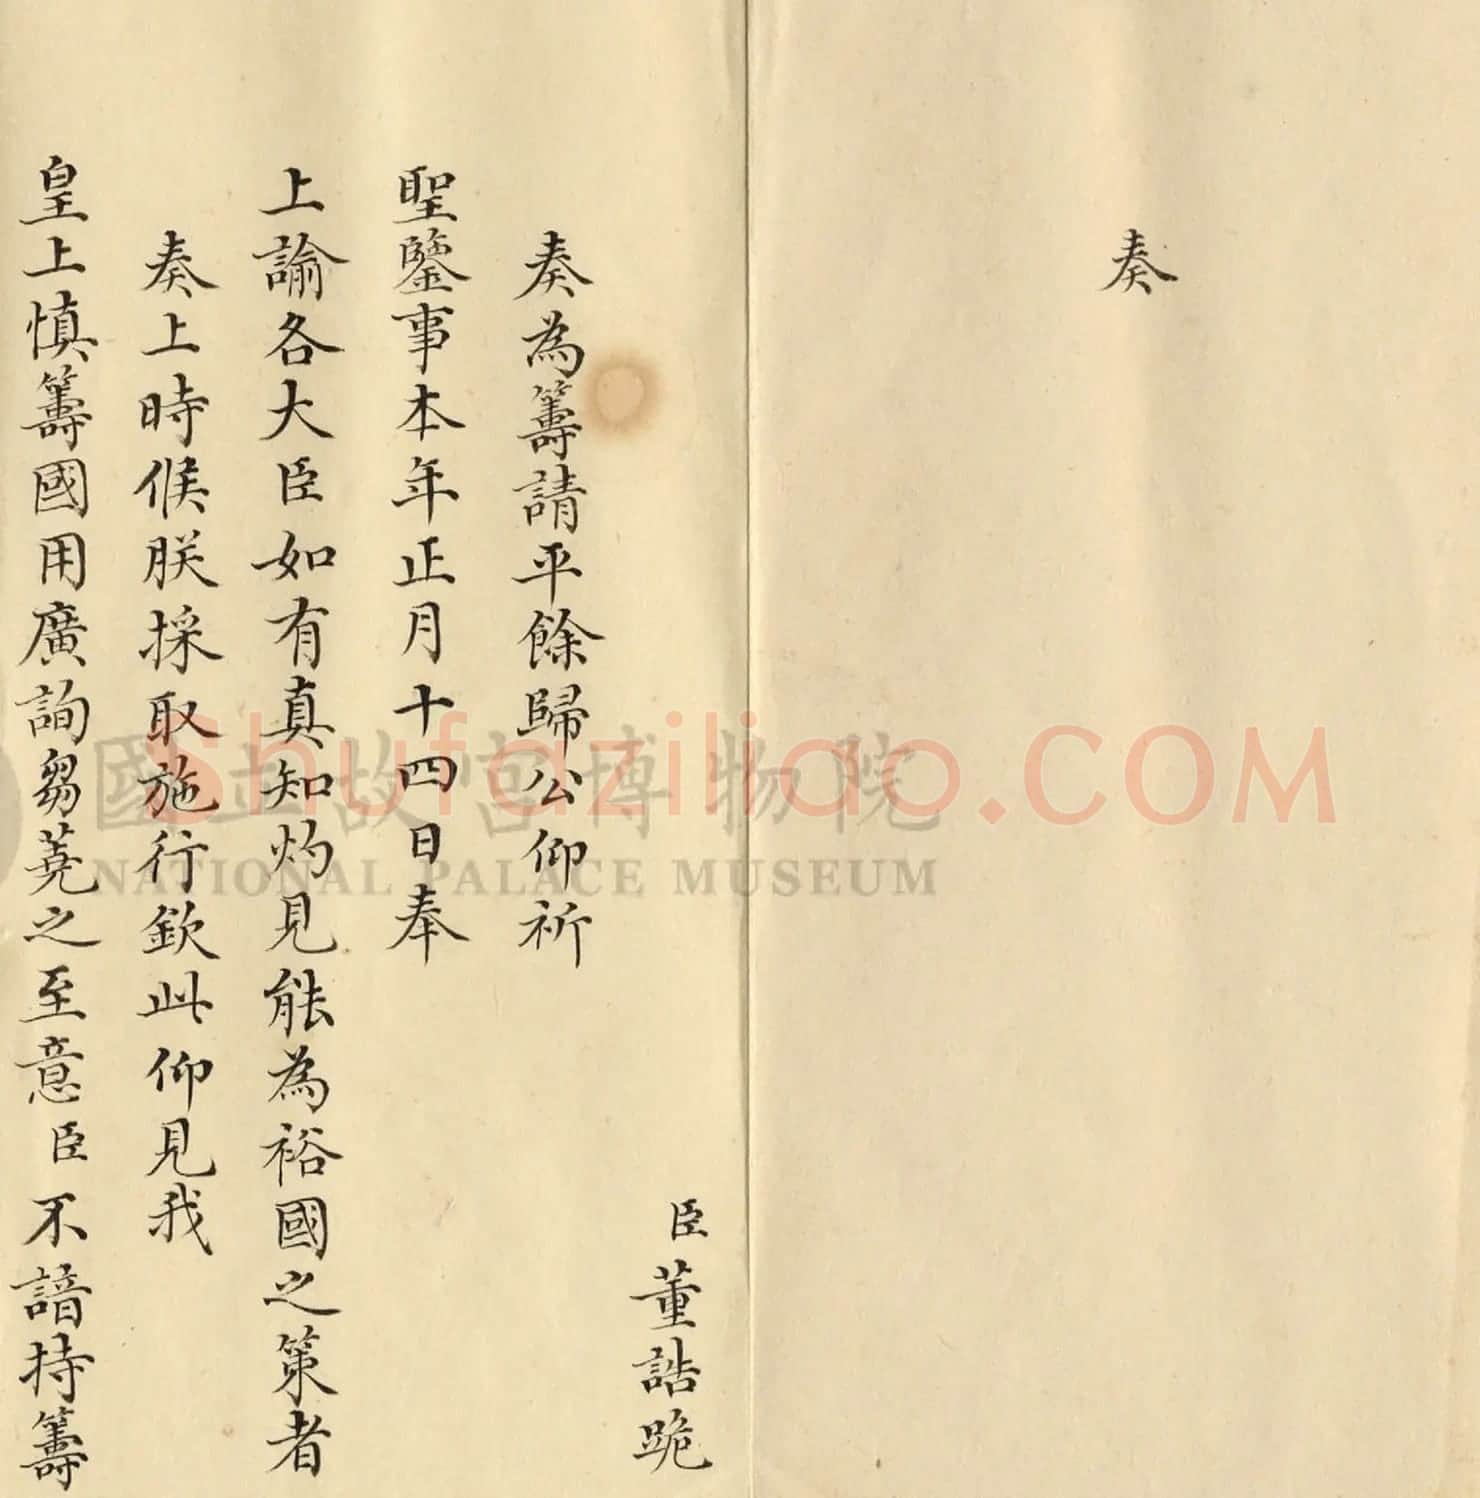 奏
臣董誥跪
奏為籌請平餘歸公仰祈
聖鑒事本年正月十四日奉
上諭各大臣如有真知灼見能為裕國之策者
奏上時候朕採取施行欽此仰見我
皇上慎籌國用廣詢芻蕘之至意臣不諳持籌
國立故宮博物院
NATIONAL PALACE MUSEUM
Shufaziliao.COM